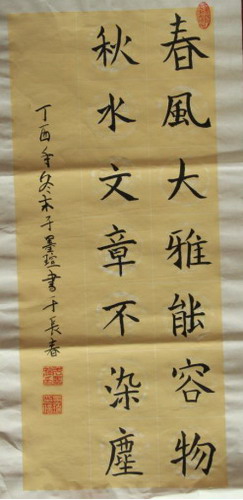 春風大雅能容物
秋水文章不染塵
丁酉年冬末子墨瑄書于長春